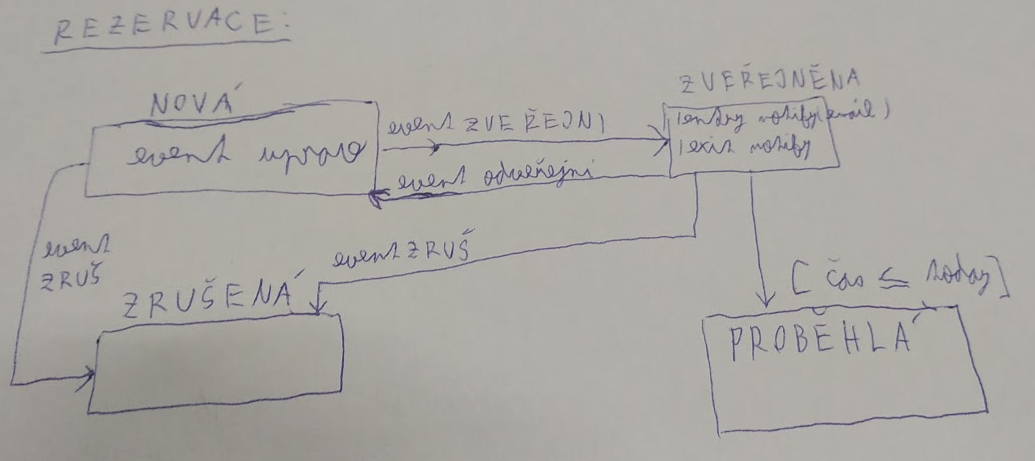 REZERVACE:
NOVÁ
event uprav
event ZVEŘEJNI
event odveřejni
ZVEŘEJNĚNA
/entry notify(email)
/exit notify
event
ZRUŠ
event ZRUŠ
ZRUŠENÁ
[čas ≤ today]
PROBĚHLÁ